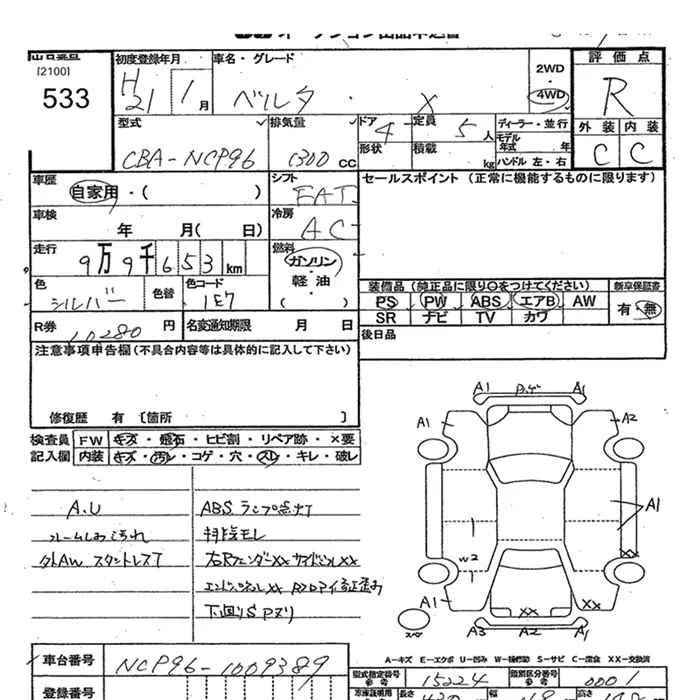 オークション出品申込書
[2100]
533
初度登録年月
H21 1月
車名・グレード
ベルタ ・ X
2WD
4WD
評価点
R
型式
CBA-NCP96
排気量
1300 cc
ドア 4
形状
定員 5人
積載 kg
ディーラー・並行
モデル年式 年
ハンドル 左・右
外装 内装
C C
車歴
自家用・( )
シフト
FAT
セールスポイント (正常に機能するものに限ります)
車検
年 月( 日)
冷房
AC
走行
9万9千653km
燃料
ガソリン・
軽油・
( )
色
シルバー
色替
色コード
1E7
装備品 (純正品に限り○をつけてください)
新車保証書
PS PW ABS エアB AW
SR ナビ TV カワ
有・無
R券
10280 円
名変通知期限 月 日
後日品
注意事項申告欄(不具合内容等は具体的に記入して下さい)
修復歴 有 〔箇所 〕
検査員
記入欄
FW キズ・飛石・ヒビ割・リペア跡・×要
内装 キズ・汚レ・コゲ・穴・スレ・キレ・破レ
A.U
ABSランプ点灯
排気モレ
下回りS
A1
A1
A1
A2
A1
W2
XX
A1
XX
XX
A3
A2
A1
スペア
A-キズ E-エクボ U-凹み W-補修跡 S-サビ C-腐食 XX-交換済
車台番号
NCP96-1009389
登録番号
型式指定番号
参考
15224
類別区分番号
参考
0001
車庫証明用
参考
長さ
幅
高さ